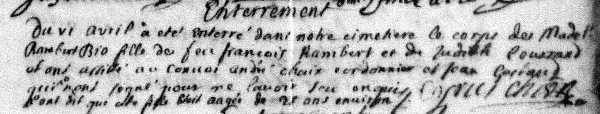 Enterrement
Du vi avril a eté enterré dans notre cimetiere le corps des Madel.
Rambert Bio fille de feu françois Rambert et de Judith Poussard
et ont assisté au convoi andré chaix cordonnier et Jean
qui n'ont signé pour ne savoir de ce enquis
n'ont dit que elle fille etoit aagée de 25 ans environ